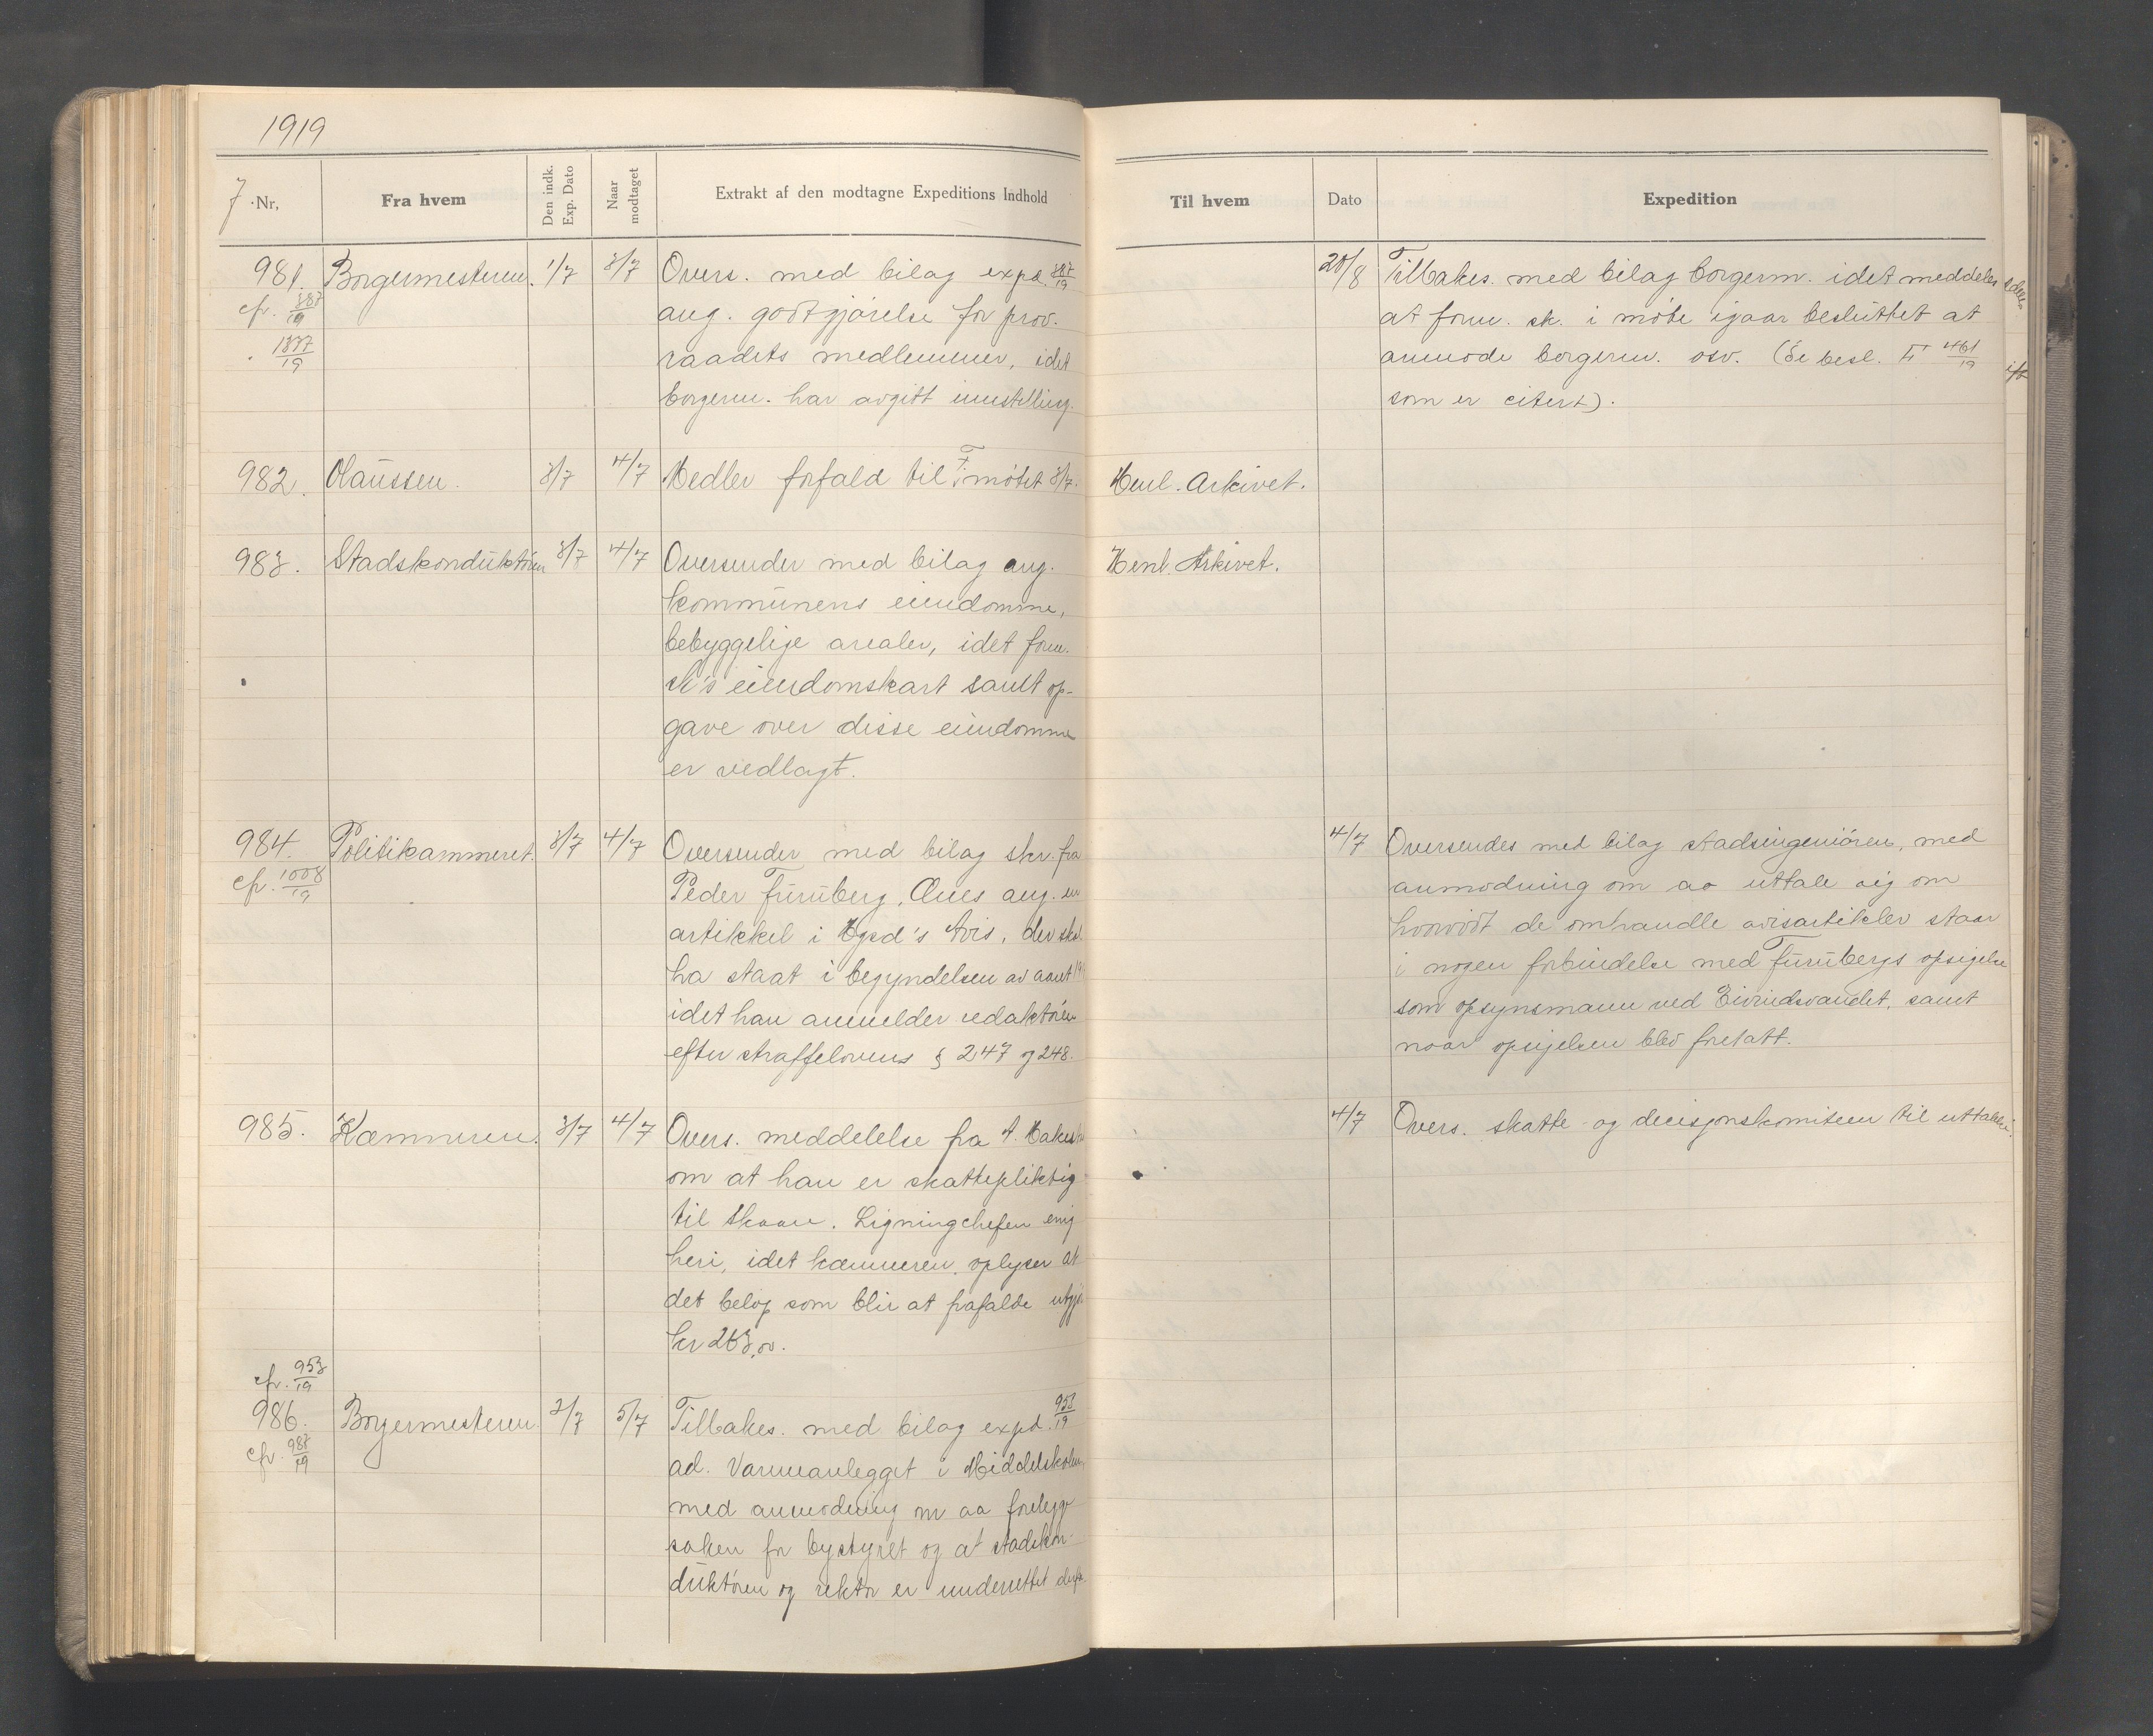 1919
7
Nr,
Fra hvem
Den indk. Exp. Dato
Naar modtaget
Extrakt af den modtagne Expeditions Indhold
Til hvem
Dato
Expedition
981. Borgermesteren. 1/7 3/7 Overs. med bilag expd. 387/19
cfr. 387/19
ang. godtgjørelse for prov.
raadets medlemmer, idet
borgerm. har avgitt innstilling.
20/8 Tilbakes. med bilag borgerm. idet meddeles
at form. sk. i møte igaar besluttet at
anmode borgerm. osv. (Se besl. F 461/19
som er citert).
982. Olaussen. 3/7 4/7 Medler forfald til F. møtet 3/7. Henl. Arkivet.
983. Stadskonduktøren 3/7 4/7 Oversender med bilag ang. Henl. Arkivet.
kommunens eiendomme,
bebyggelige arealer, idet form.
sk's eiendomskart samt op-
gave over disse eiendomme
er vedlagt.
984. Politikammeret. 3/7 4/7 Oversender med bilag skr. fra
cfr. 1008/19
Peder Furuberg, Anes ang. en
artikkel i Hgsd's Avis, der skal
ha staat i begyndelsen av aaret
idet han anmelder redaktøren
efter straffelovens § 247 og 248.
4/7 Oversendes med bilag stadsingeniøren, med
anmodning om aa uttale sig om
hvorvidt de omhandle avisartikler staar
i nogen forbindelse med Furubergs opsigelse
som opsynsmann ved Eivindsvandet, samt
naar opsigelsen blev foretatt.
985. Kæmneren. 3/7 4/7 Overs. meddelelse fra A.
om at han er skattepliktig
til Skaare. Ligningchefen enig
heri, idet kæmneren oplyser at
det beløp som blir at frafalde utgjør
kr 263,00.
4/7 Overs. skatte- og decisjonskomiteen til uttalelse.
cfr. 953/19
986. Borgermesteren. 2/7 5/7 Tilbakes. med bilag expd. 953/19
cfr. 987/19
ad. Varmeanlegget i Middelskolen,
med anmodning om aa forelegge
saken for bystyret og at stadskon-
duktøren og rektor er underrettet